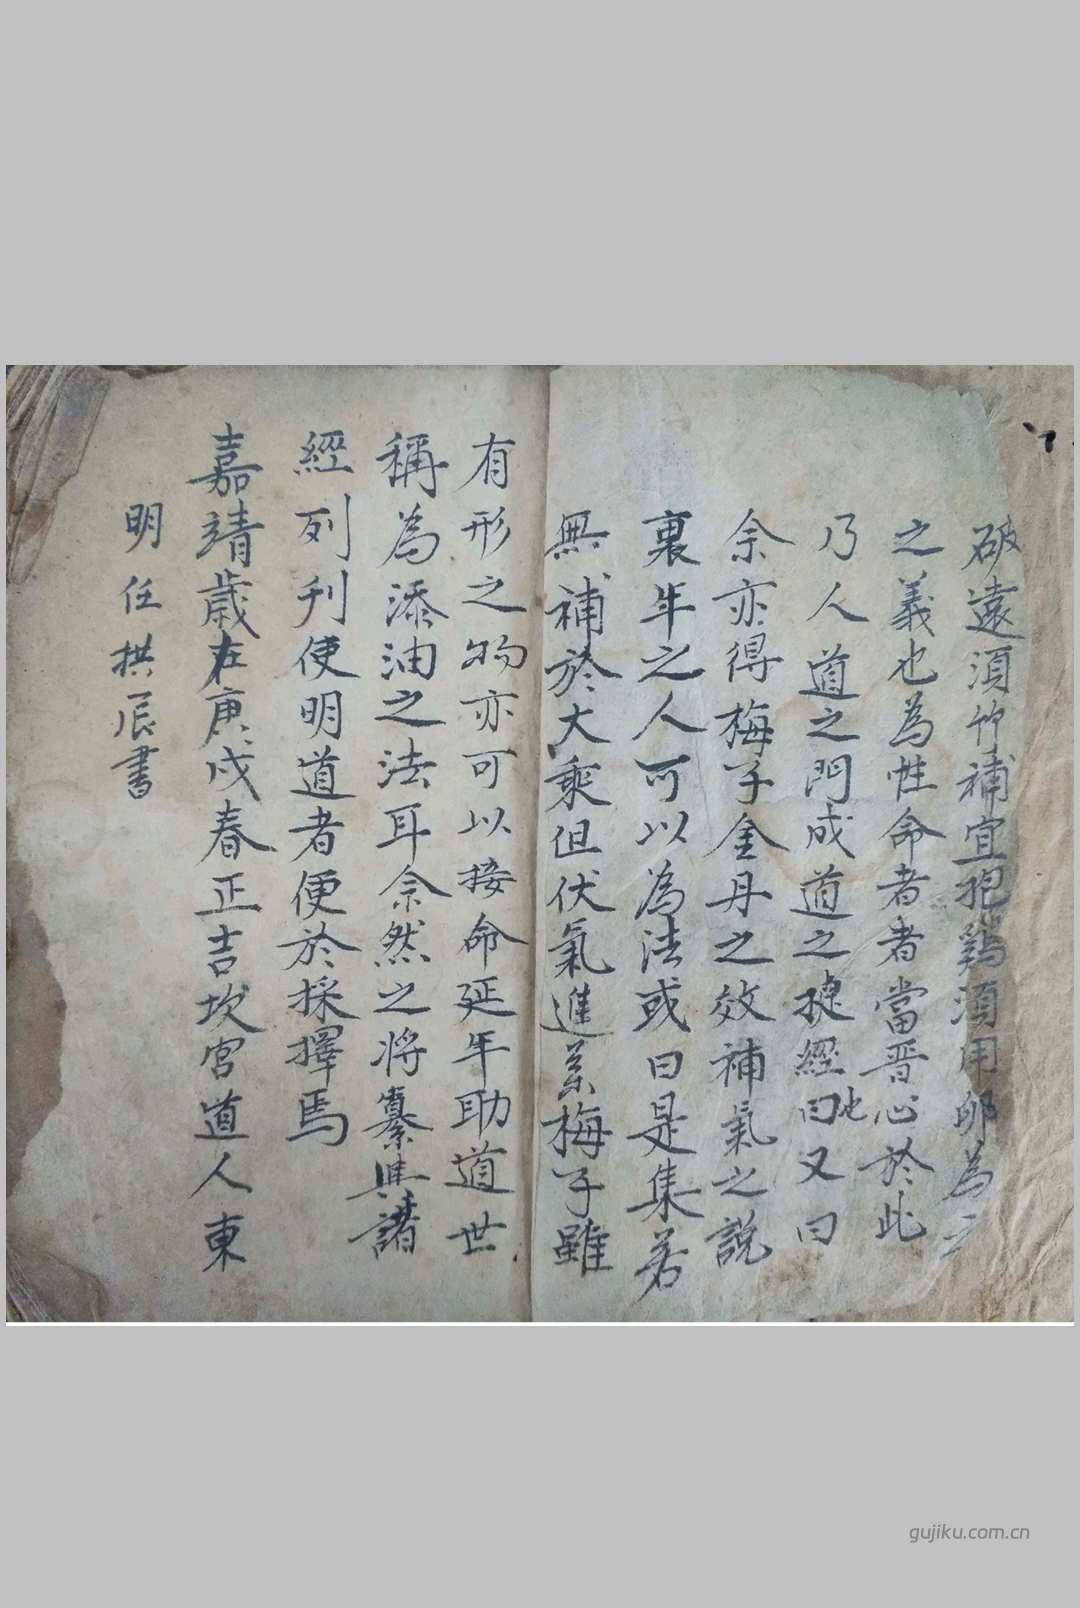 破遠須竹補宜抱鷄須用卵為之
之義也為性命者者當晋心於此
乃人道之門成道之捷經也曰又曰
余亦得梅子金丹之效補氣之說
衰年之人可以為法或曰是集若
無補於大乘但伏氣進永梅子雖
有形之物亦可以接命延年助道世
稱為添油之法耳余然之將纂集諸
經列刊使明道者便於採擇焉
嘉靖歲在庚戌春正吉坎宮道人東
明任拱辰書
gujiku.com.cn